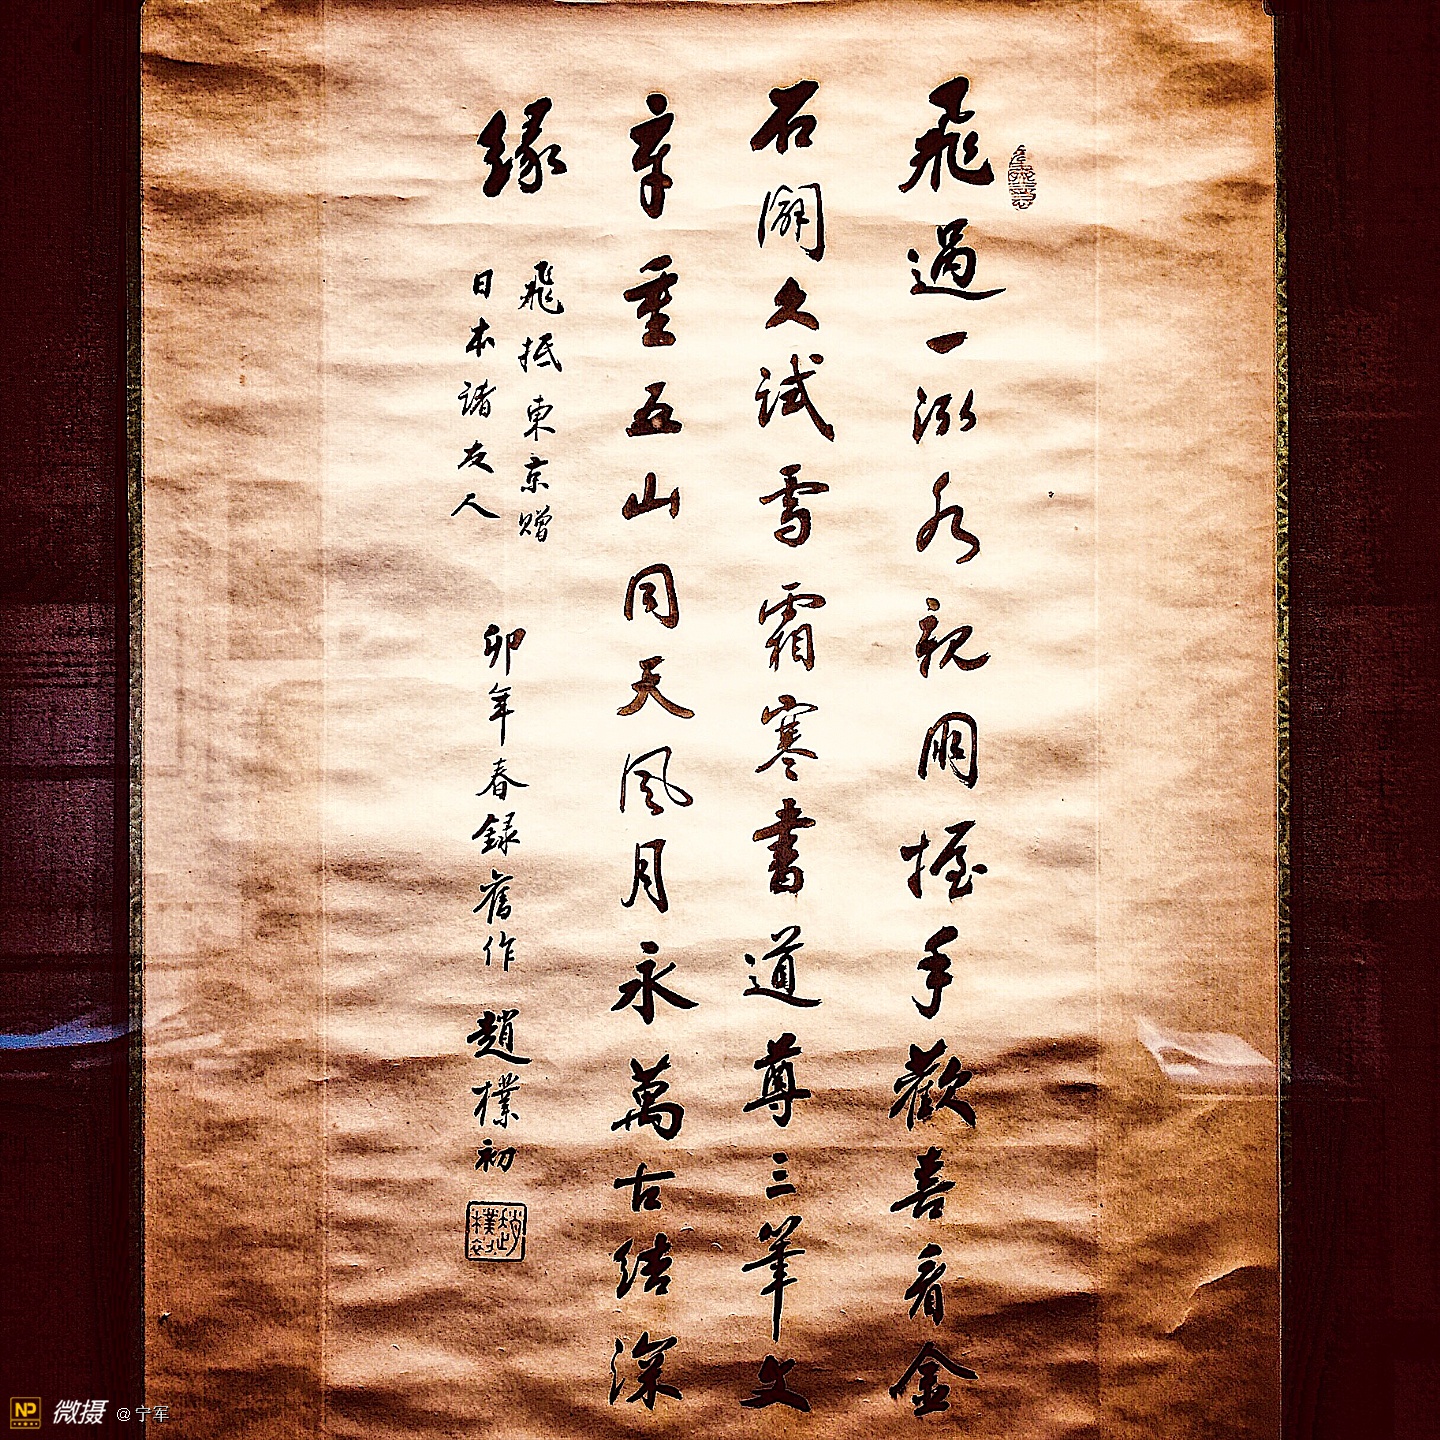 飛過一泓水親朋握手歡喜看金
石開久試雪霜寒書道尊三筆文
章重五山同天風月永萬古結深
緣
飛抵東京贈
日本諸友人
卯年春録舊作 趙樸初
趙樸初
NP 微摄 @宁军